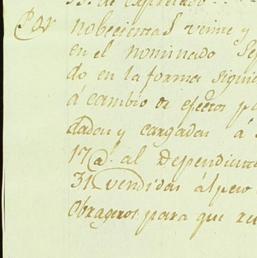 Por nobecientas veinte y
en el nominado Se
do en la forma sigui
á cambio de efectos pa
dadas y cargadas á
17@ al dependiente
31 vendidas ál peso
Obrageros para que re